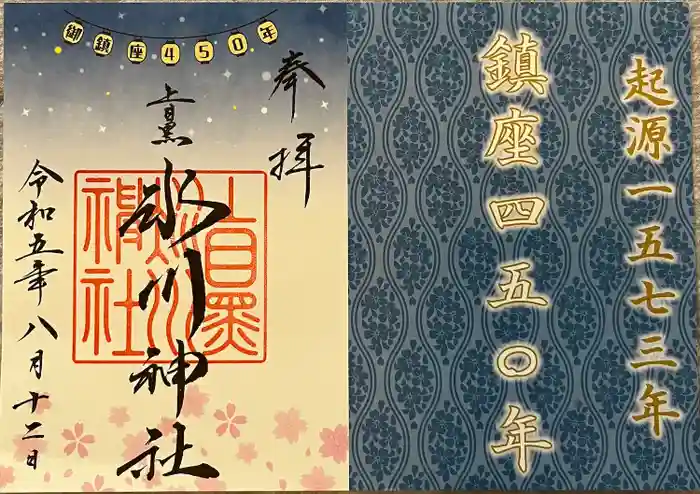 起源一五七三年
鎮座四五〇年
御鎮座450年
奉拝
上目黒
氷川神社
上目黒氷川神社
令和五年八月十二日